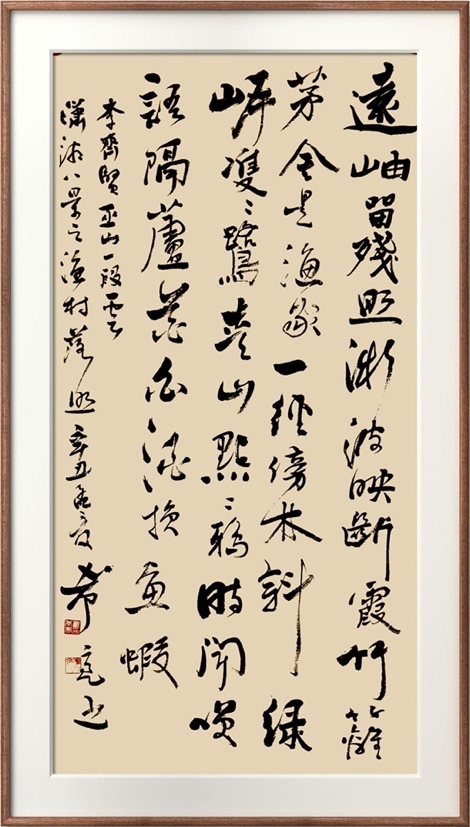 遠岫留殘照微波映斷霞竹籬
茅舍是漁家一徑傍林斜緑
岸雙〻鷺青山點〻鴉時聞咲
語隔蘆花白酒換魚蝦
李齊賢巫山一段雲
瀟湘八景之漁村落照辛丑 希